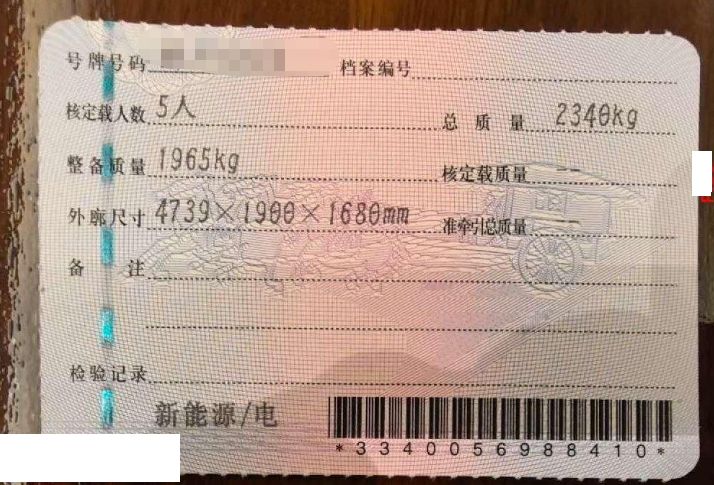 号牌号码 档案编号
核定载人数 5人 总质量 2340kg
整备质量 1965kg 核定载质量 --
外廓尺寸 4739×1900×1680mm 准牵引总质量 --
备注
检验记录
新能源/电
*3340056988410*